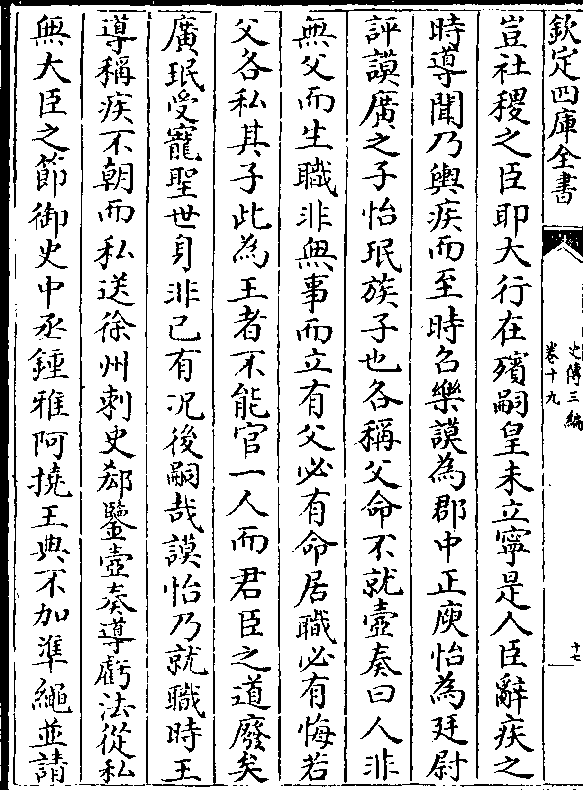 欽定四庫全書
史傳三編
卷十九
十七
豈社稷之臣耶大行在殯嗣皇未立寧是人臣辭疾之
時導聞乃輿疾而至時召樂謨為郡中正庾怡為廷尉
評謨廣之子怡珉族子也各稱父命不就壼奏曰人非
無父而生職非無事而立有父必有命居職必有悔若
父各私其子此為王者不能官一人而君臣之道廢矣
廣珉受寵聖世身非己有况後嗣哉謨怡乃就職時王
導稱疾不朝而私送徐州刺史郄鑒壼奏導虧法從私
無大臣之節御史中丞鍾雅阿撓王典不加準繩並請